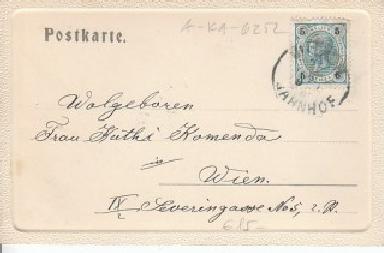 Postkarte.
A-KA-6252
5 5
5 5
BAHNHOF
Wolgeboren
Frau Käthi Komenda
Wien.
IX Severingasse No 5, z. P.
615-